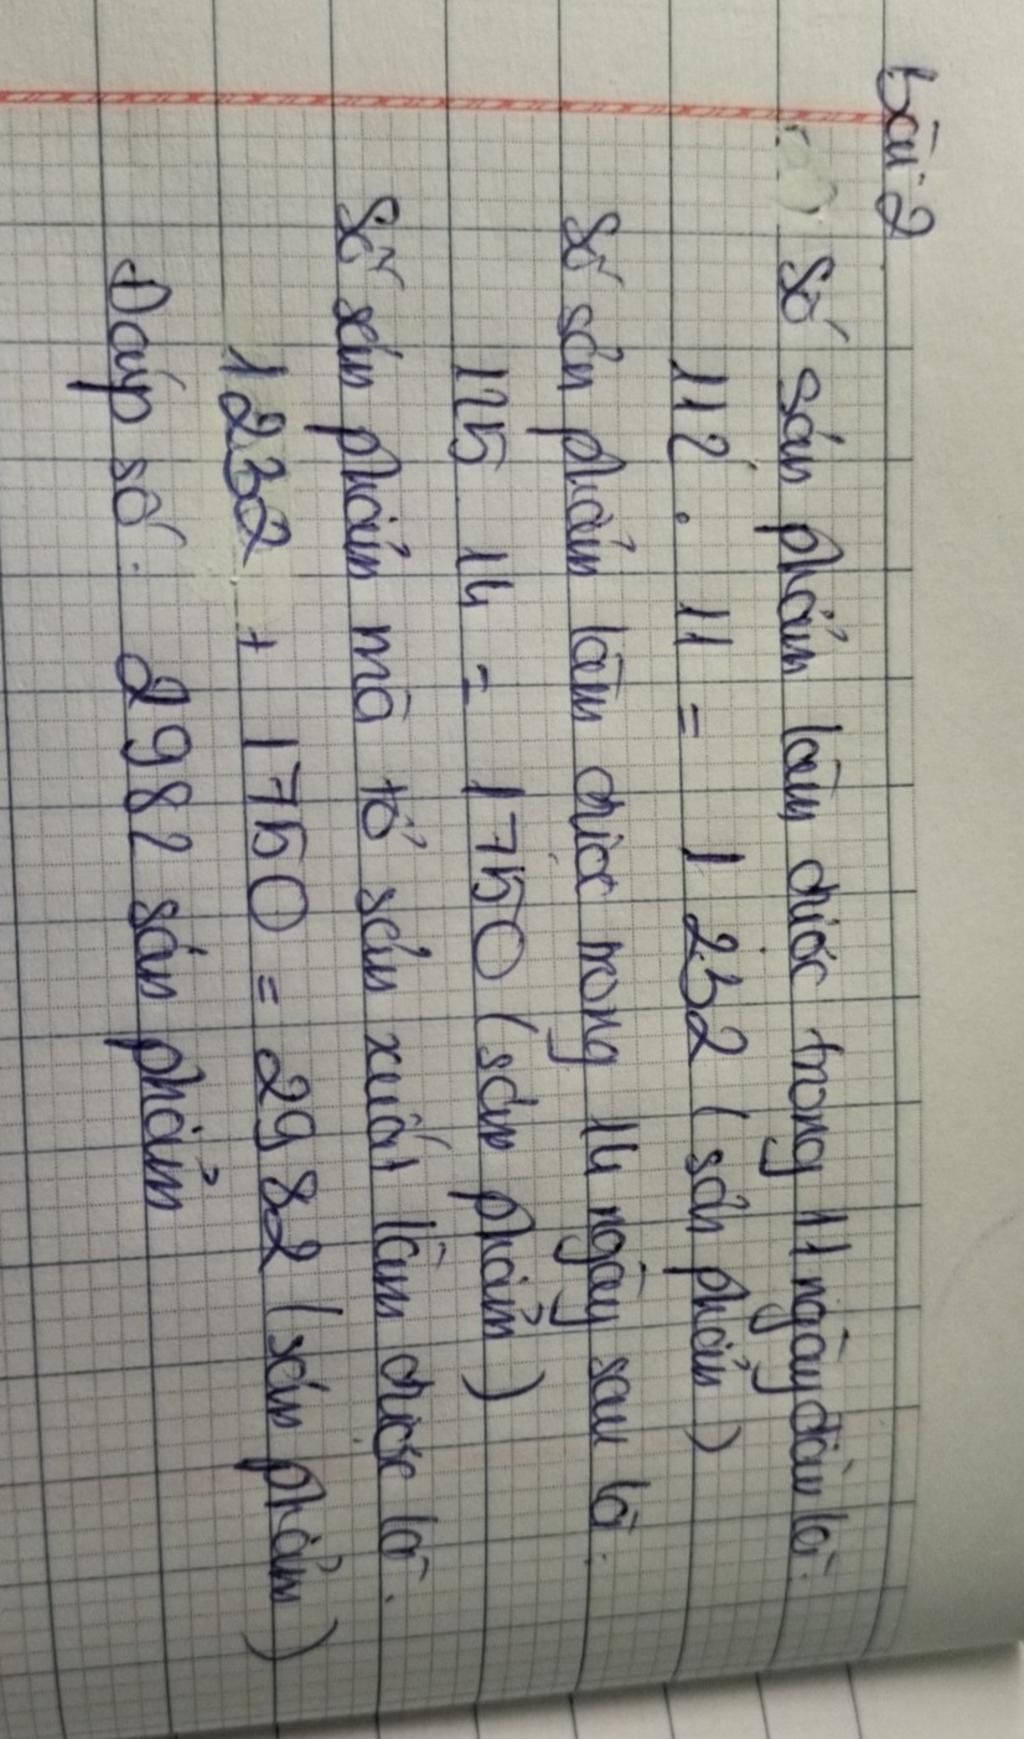 bài 2
Số sản phẩm làm được trong 11 ngày đầu là:
112 . 11 = 1 232 ( sản phẩm )
Số sản phẩm làm được trong 14 ngày sau là:
125 14 = 1750 ( sản phẩm )
Số sản phẩm mà tổ sản xuất làm được là:
1232 + 1750 = 2982 ( sản phẩm )
Đáp số: 2982 sản phẩm